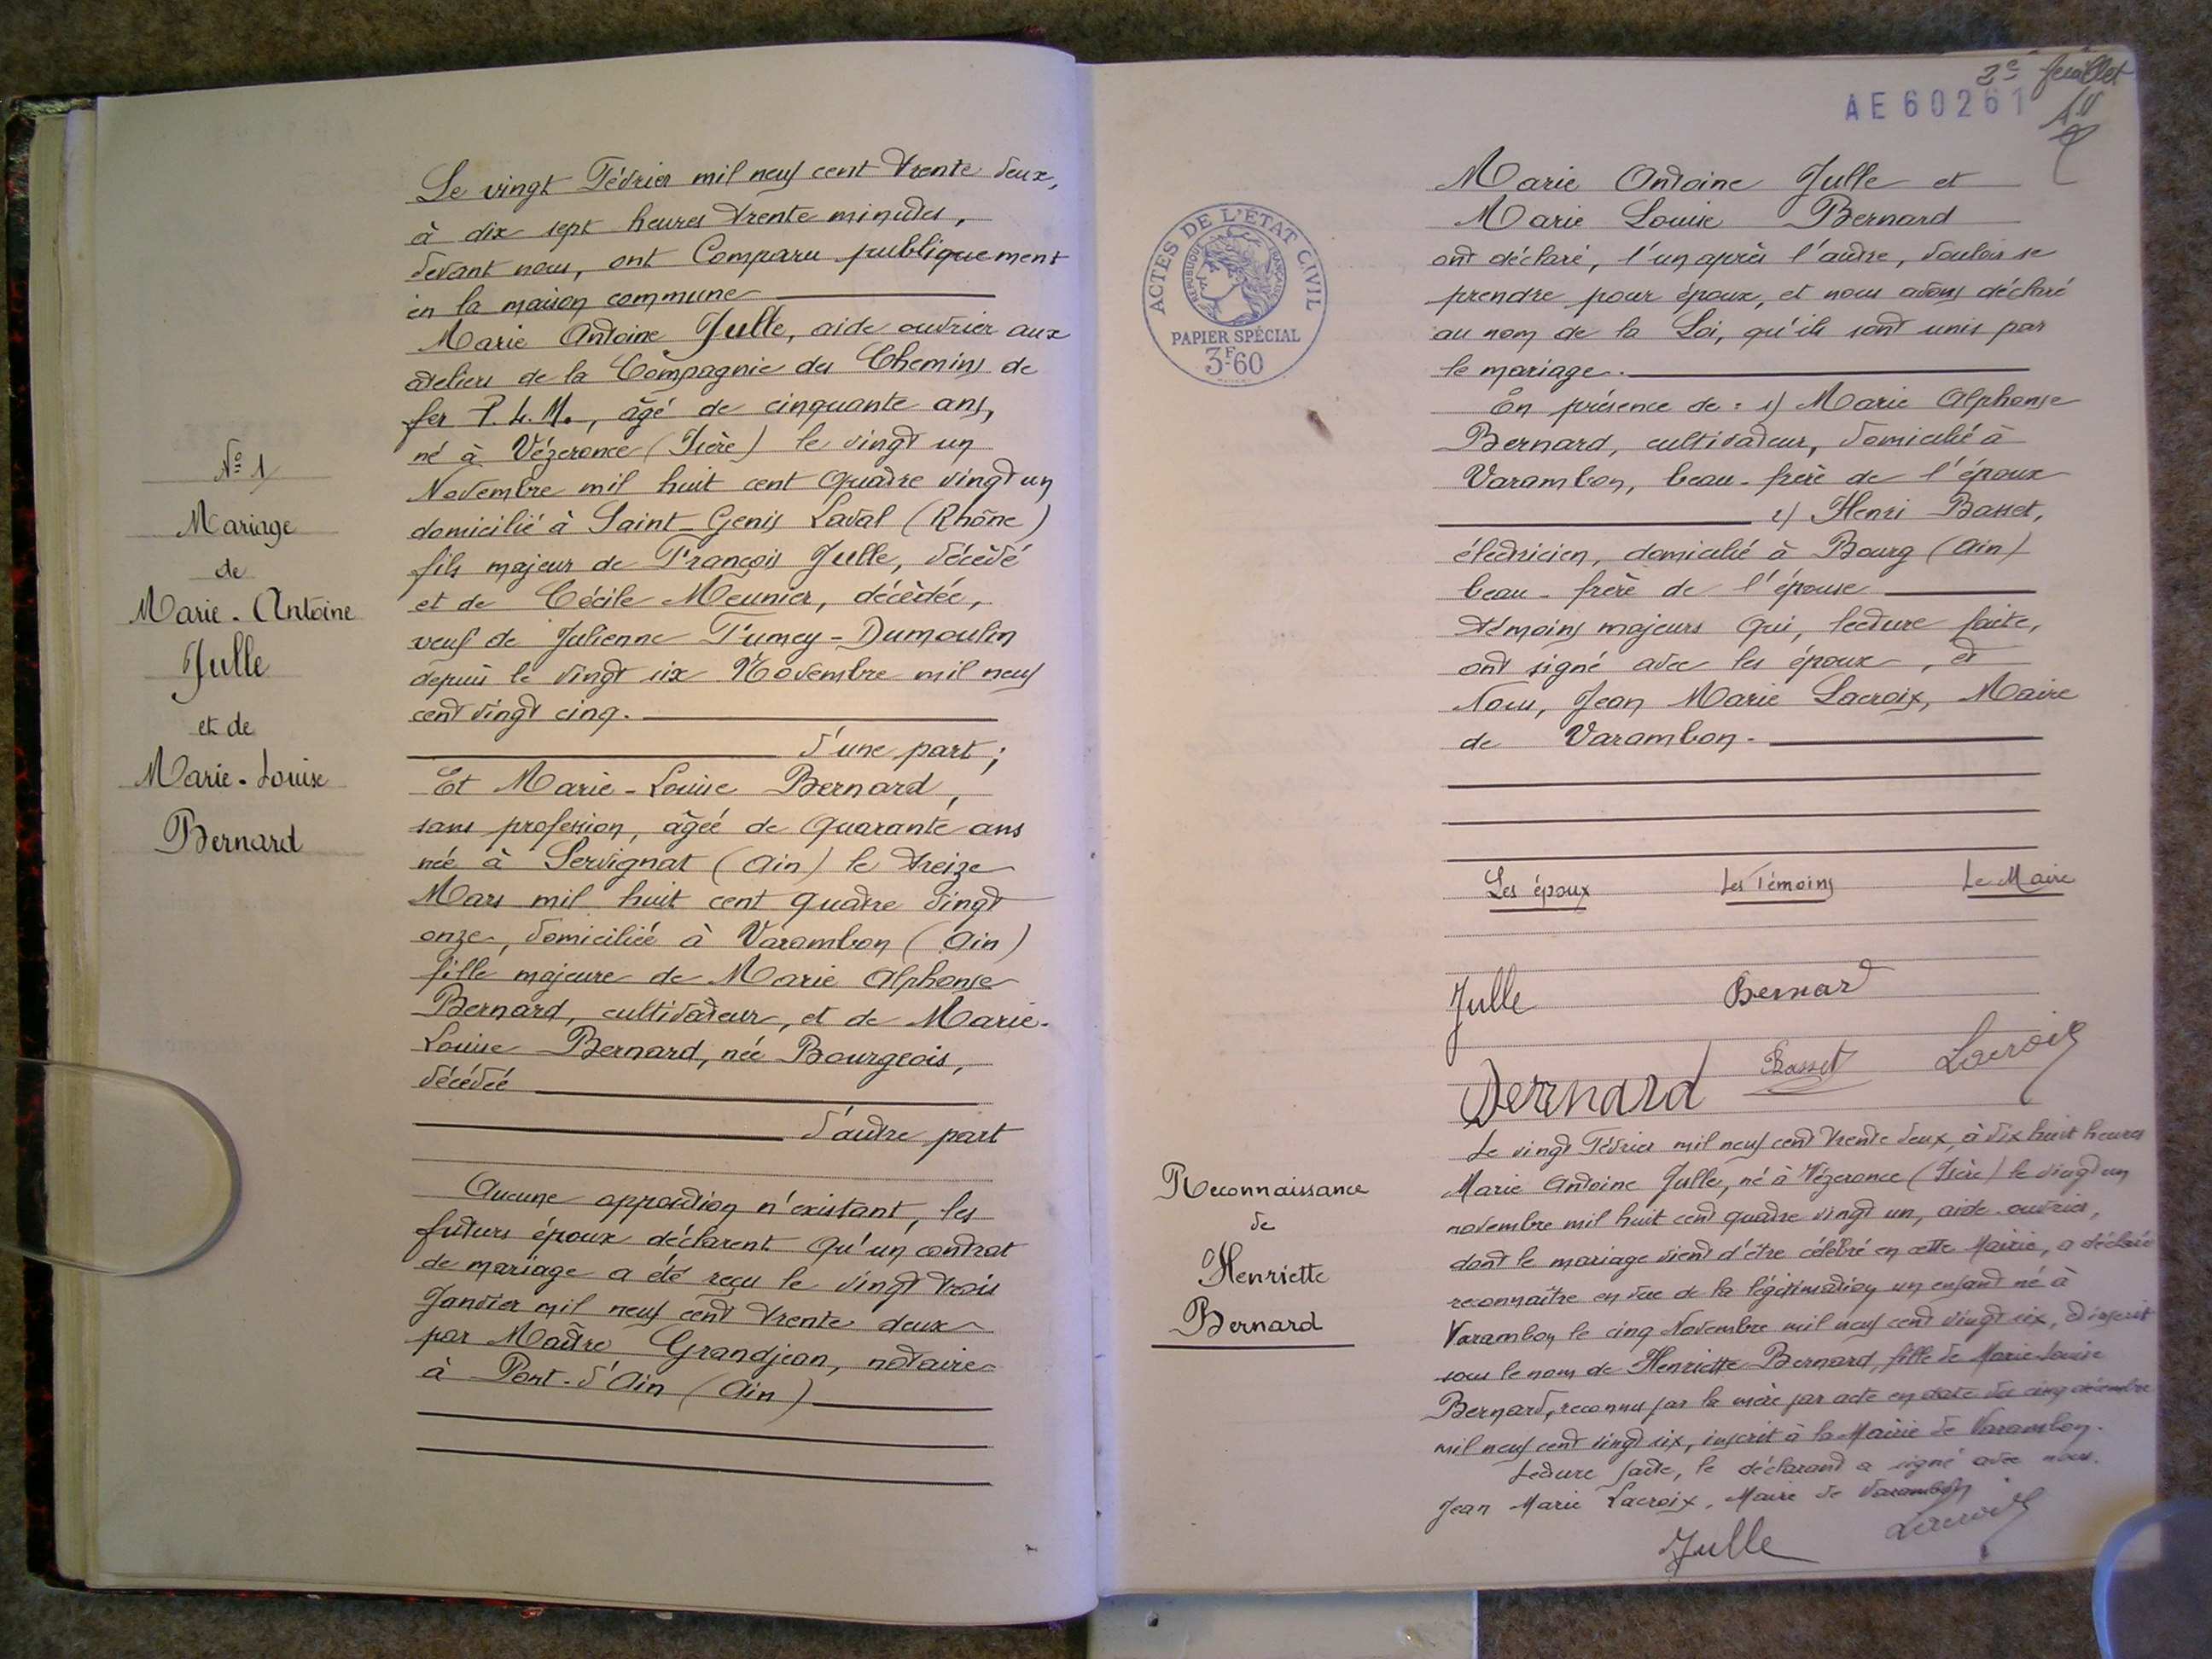 Le vingt Février mil neuf cent trente deux,
à dix sept heures trente minutes,
devant nous, ont Comparu publiquement
en la maison commune
Marie Antoine Julle, aide ouvrier aux
ateliers de la Compagnie des Chemins de
fer P.L.M., âgé de cinquante ans,
né à Vézeronce (Isère) le vingt un
Novembre mil huit cent quatre vingt un
domicilié à Saint-Genis Laval (Rhône)
fils majeur de François Julle, décédé
et de Cécile Meunier, décédée,
veuf de Julienne Fumey-Dumoulin
depuis le vingt six Novembre mil neuf
cent vingt cinq.
d'une part;
Et Marie-Louise Bernard,
sans profession, âgée de quarante ans
née à Servignat (Ain) le treize
Mars mil huit cent quatre vingt
onze, domiciliée à Varambon (Ain)
fille majeure de Marie Alphonse
Bernard, cultivateur, et de Marie-
Louise Bernard, née Bourgeois,
décédée
d'autre part
Aucune opposition n'existant, les
futurs époux déclarent qu'un contrat
de mariage a été reçu le vingt trois
Janvier mil neuf cent trente deux
par Maître Grandjean, notaire
à Pont-d'Ain (Ain)
N° 1
Mariage
de
Marie-Antoine
Julle
et de
Marie-Louise
Bernard
2e feuillet
AE 60261
ACTES DE L'ÉTAT CIVIL
RÉPUBLIQUE FRANÇAISE
PAPIER SPÉCIAL
3F60
Marie Antoine Julle et
Marie Louise Bernard
ont déclaré, l'un après l'autre, vouloir se
prendre pour époux, et nous avons déclaré
au nom de la Loi, qu'ils sont unis par
le mariage.
En présence de: 1) Marie Alphonse
Bernard, cultivateur, domicilié à
Varambon, beau-frère de l'époux
2) Henri Basset,
électricien, domicilié à Bourg (Ain)
beau-frère de l'épouse
témoins majeurs qui, lecture faite,
ont signé avec les époux, et
Nous, Jean Marie Lacroix, Maire
de Varambon.
Les époux Les Témoins Le Maire
Julle Bernard
Bernard Basset Lacroix
Reconnaissance
de
Henriette
Bernard
Le vingt Février mil neuf cent trente deux, à dix huit heures
Marie Antoine Julle, né à Vézeronce (Isère) le vingt un
novembre mil huit cent quatre vingt un, aide ouvrier,
dont le mariage vient d'être célébré en cette Mairie, a déclaré
reconnaître en vue de la légitimation un enfant né à
Varambon le cinq Novembre mil neuf cent vingt six, inscrit
sous le nom de Henriette Bernard, fille de Marie-Louise
Bernard, reconnu par la mère par acte en date du cinq décembre
mil neuf cent vingt six, inscrit à la Mairie de Varambon.
Lecture faite, le déclarant a signé avec nous.
Jean Marie Lacroix, Maire de Varambon
Julle Lacroix